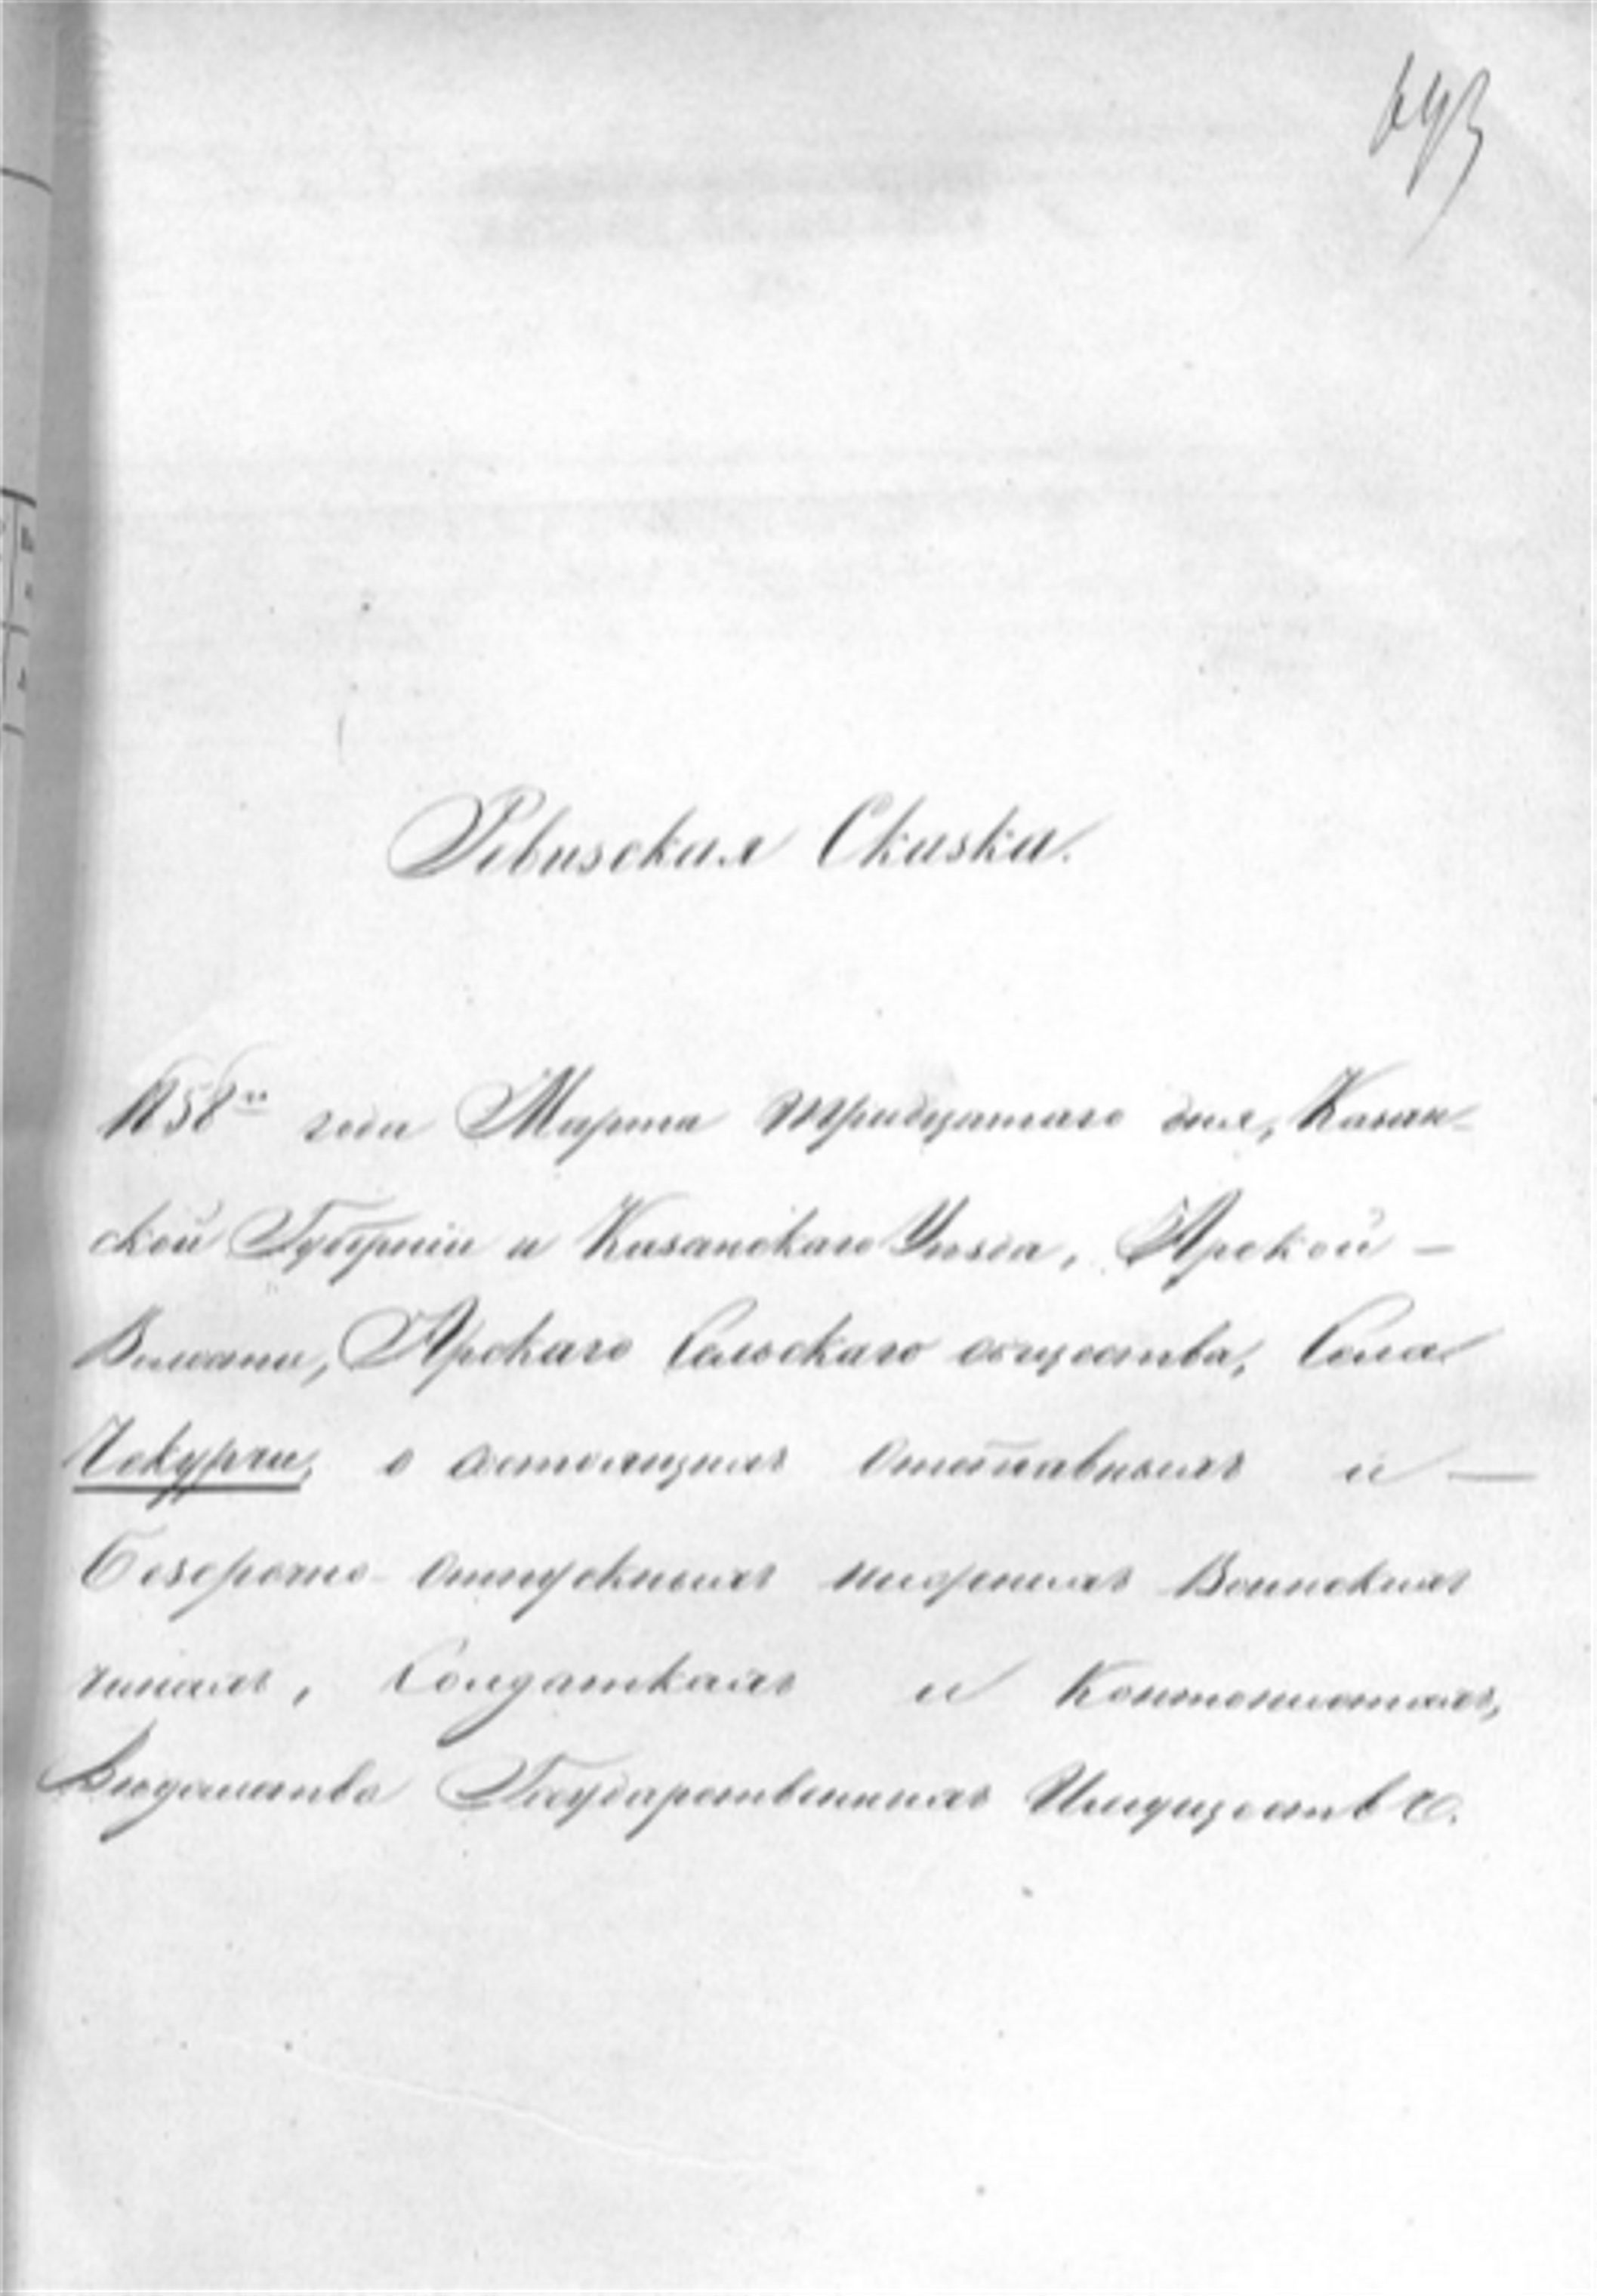 693
Ревизская Сказка.
1858го года Марта тридцатаго дня, Казан-
ской Губерніи и Казанскаго Уезда, Арской —
Волости, Арскаго Сельскаго общества, Села
Чекурчи, о состоящихъ отставныхъ и —
Безсрочно-отпускныхъ нижнихъ Воинскихъ
чинахъ, Солдаткахъ и Кантонистахъ,
Ведомства Государственныхъ Имуществъ.